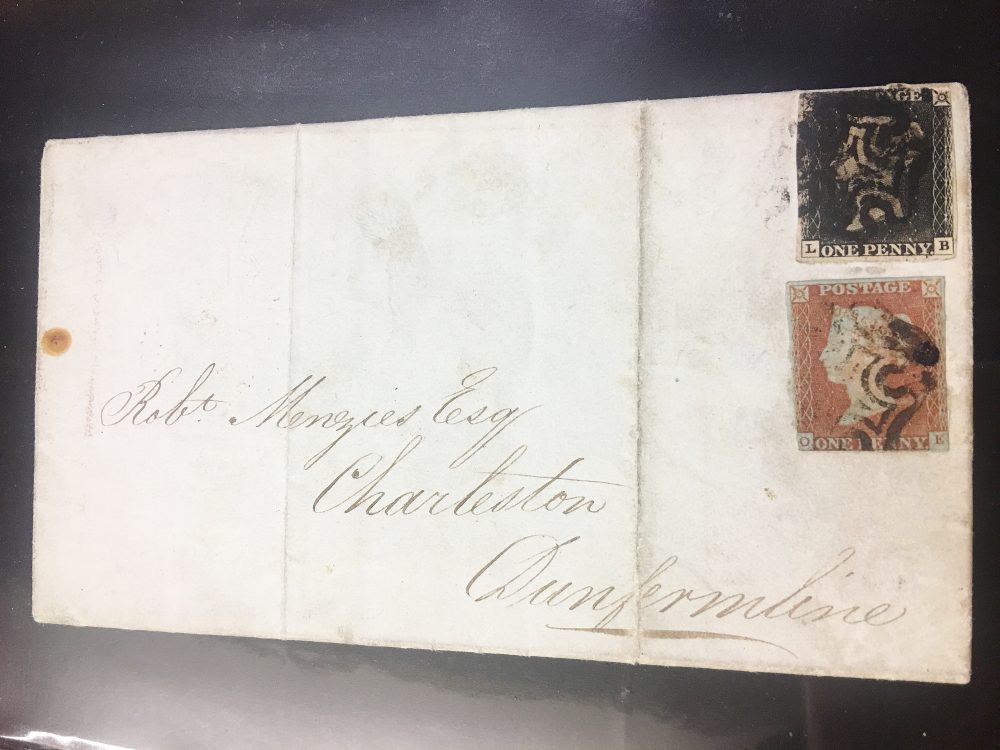 GE
L ONE PENNY B
POSTAGE
O ONE PENNY E
Robt. Menzies Esq
Charleston
Dunfermline